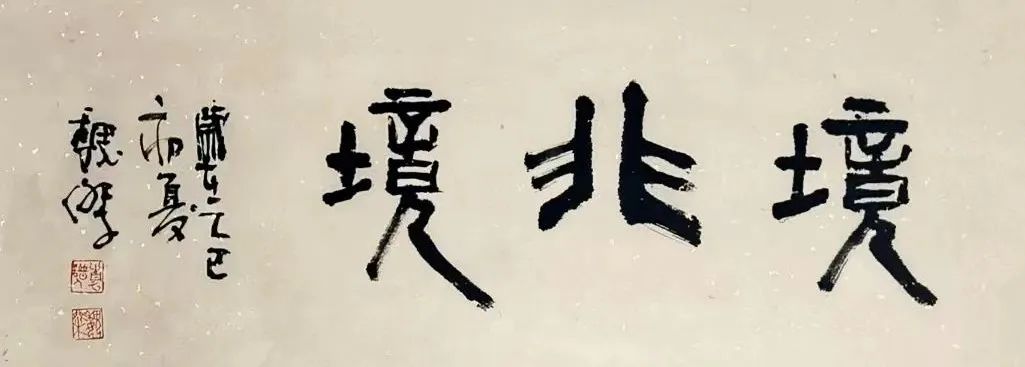 境非境
歲在乙巳
初夏
魏傑